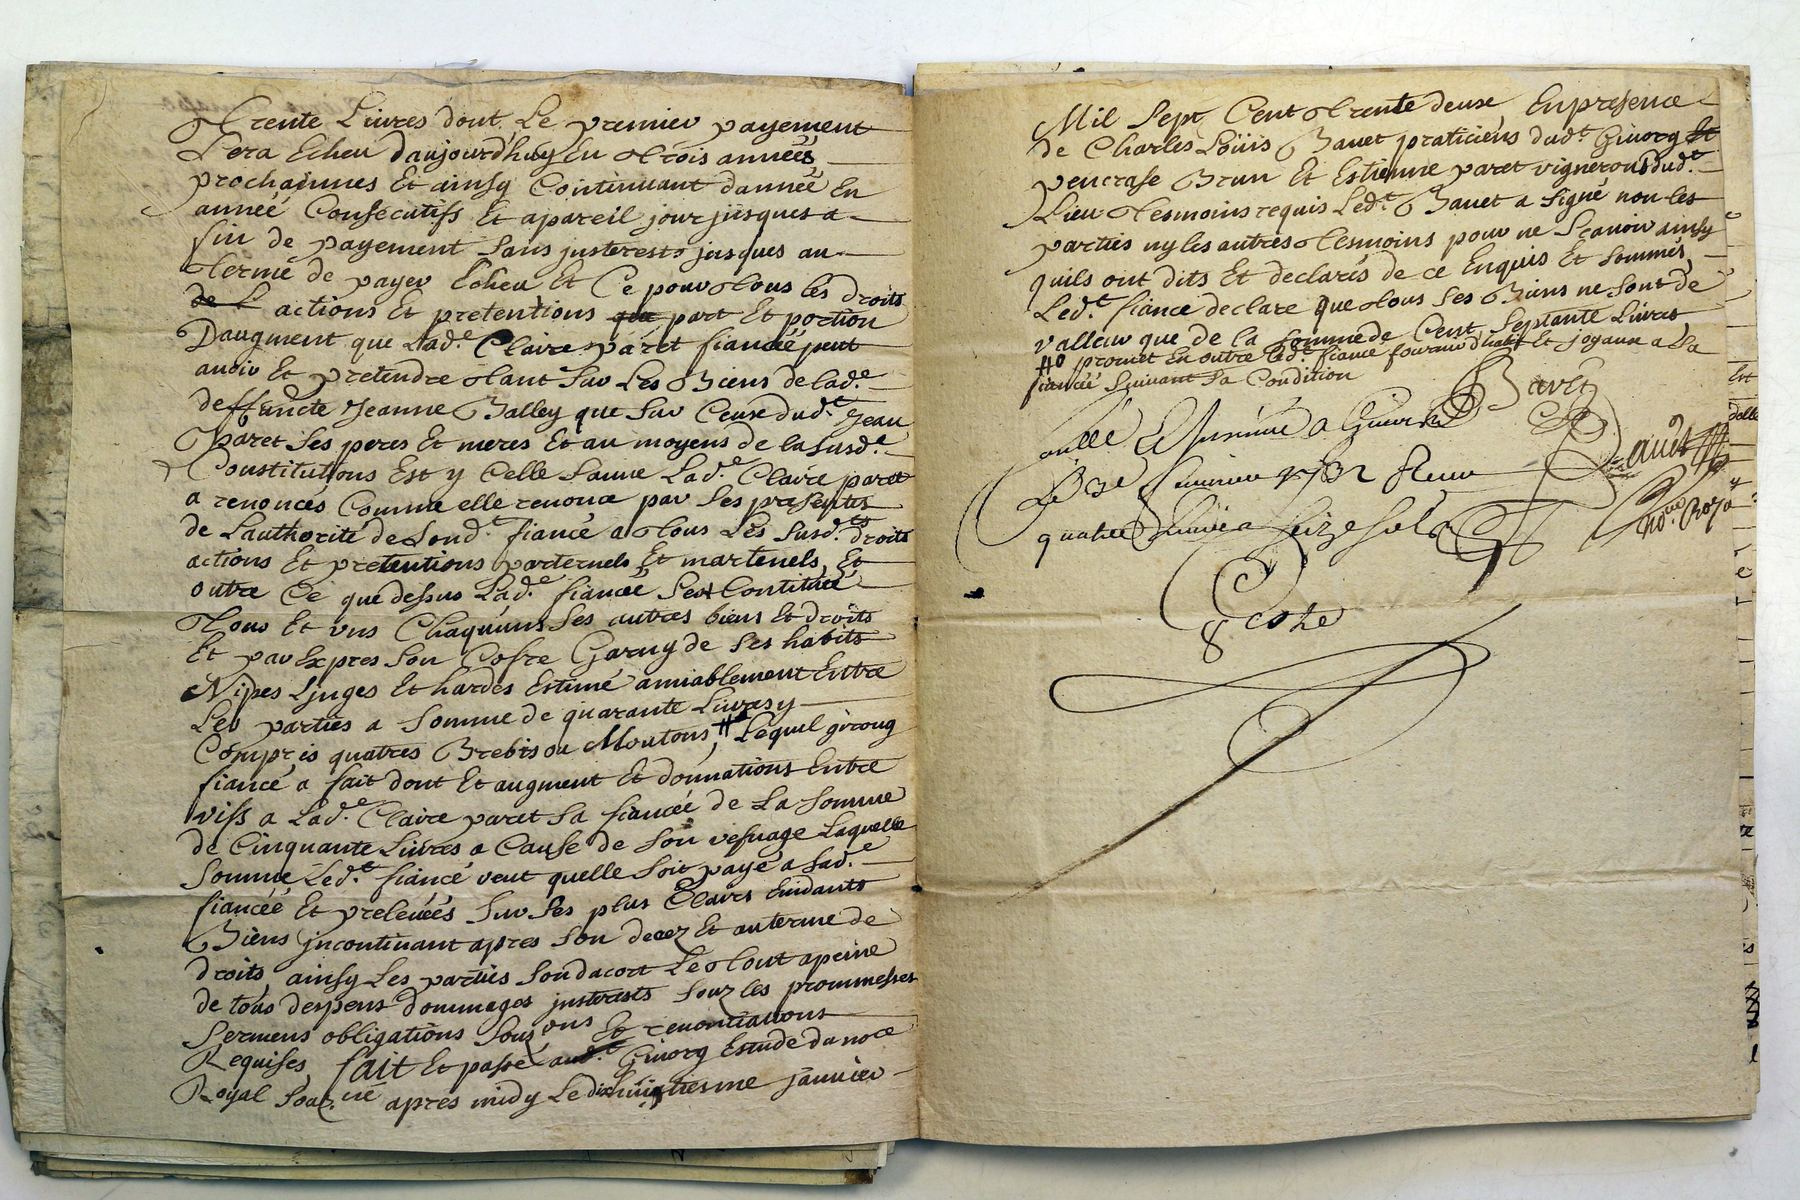 Trente Livres dont Le premier payement
Sera Echeu daujourdhuy En trois années
prochainnes Et ainsy Continuant dannée En
année Consecutifs Et apareil jour jusques a
fin de payement sans justerests jusques au
terme de payer Echeu Et Ce pour tous les droits
actions Et pretentions part Et portion
Daugment que Lad.e Claire paret fiancée peut
avoir Et pretendre tant sur Les Biens de lad.e
deffuncte Jeanne Balley que sur Ceuse dud.t Jean
Paret Ses peres Et meres Et au moyens de la susd.e
Constitutions Est y Celle Lad.e Claire paret
a renoncés Comme elle renonce par Ses presentes
de Lauthorité de Sond.t fiancé a tous Les Susd.ts droits
actions Et pretentions parternels Et marternels, Et
outre Ce que dessus Lad.e fiancée Sest Contituée
Tous Et uns Chaquuns Ses autres biens Et droits
Et par Expres Son Cofre Garny de Ses habits
Nipes Linges Et hardes Estimé amiablement Entre
Les parties a Somme de quarante Livres y
Compris quatres Brebis ou Moutons, # Lequel giroug
fiancé a fait dont Et augment Et donnations Entre
vifs a Lad.e Claire paret Sa fiancée de La Somme
de Cinquante Livres a Cause de Son vefuage Laquelle
Somme Led.t fiancé veut quelle Soit payé a Sad.e
fiancée Et prelevées Sur Ses plus Clairs Euidants
Biens jncontinant apres Son decez Et auterme de
droits, ainsy Les parties Sondacort Le tout apeine
de tous despens dommages justerests Souz les prommesses
Sermens obligations Sous ons Et renontiations
Requises, fait Et passé aud.t Givorg Estude du no.re
Royal Souz.né apres midy Le dixhuistiesme janvier
Mil Sept Cent trente deuse Enpresence
de Charles Loüis Bavet praticiens dud.t Givorg
pencrase Brun Et Estienne paret vignerons dud.t
Lieu tesmoins requis Led.t Bavet a Signé non les
parties ny les autres tesmoins pour ne Scavoir ainsy
quils ont dits Et declarés de ce Enquis Et Sommés,
Led.t fiancé declare que tous Ses Biens ne Sont de
valleur que de la Somme de Cent Septante Livres
# promet En outre Led.t fiancé fournir dhabit Et joyaux a Sa
fiancée Suivant Sa Condition
Bavet
a Givors
Le 1732
quatre Seize Sols
Bavet
no.re Roya
Coste